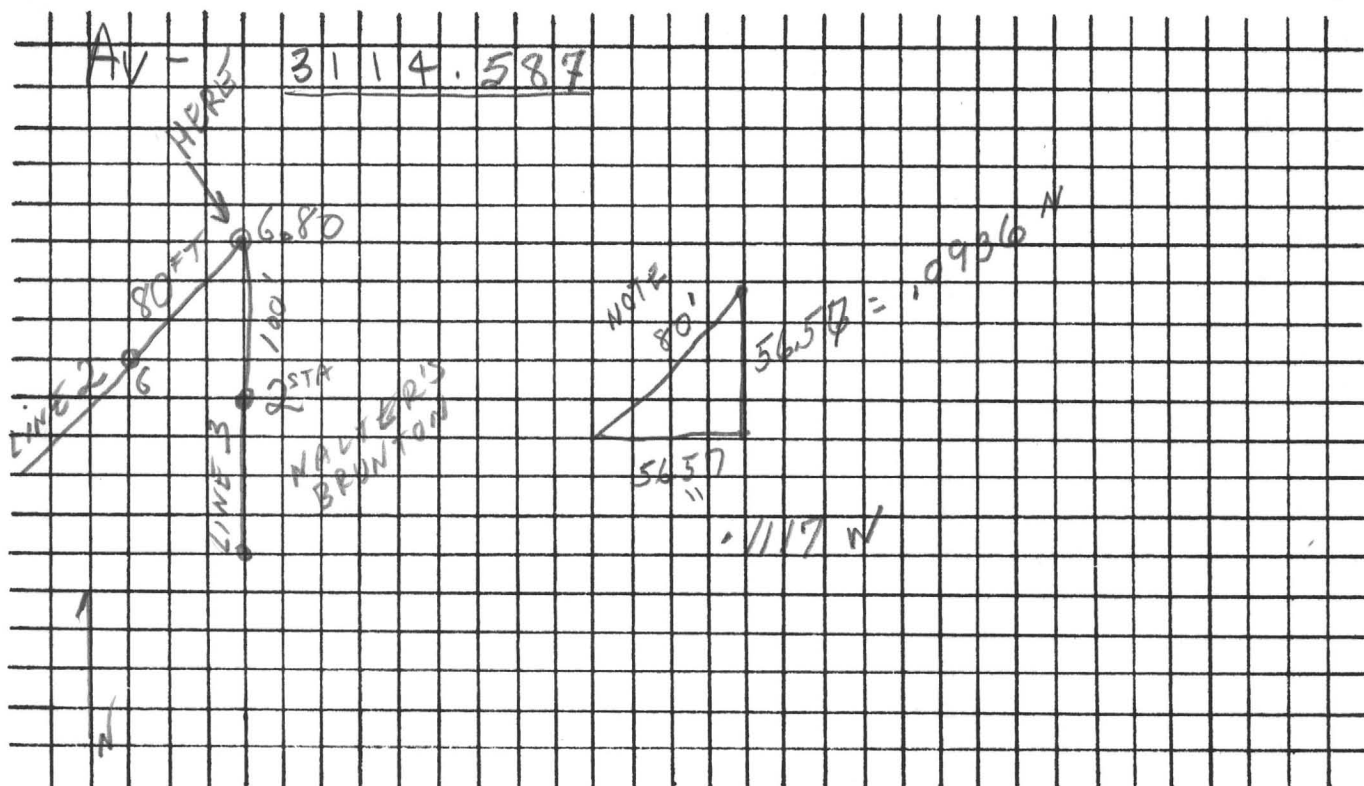 AV - 3114.587
HERE
6.80
80 FT
100'
LINE 2
6
2 STA
LINE 3
WALTER'S
BRUNTON
N
NOTE
80'
56.57 = .0936 N
56.57
"
.1117 W